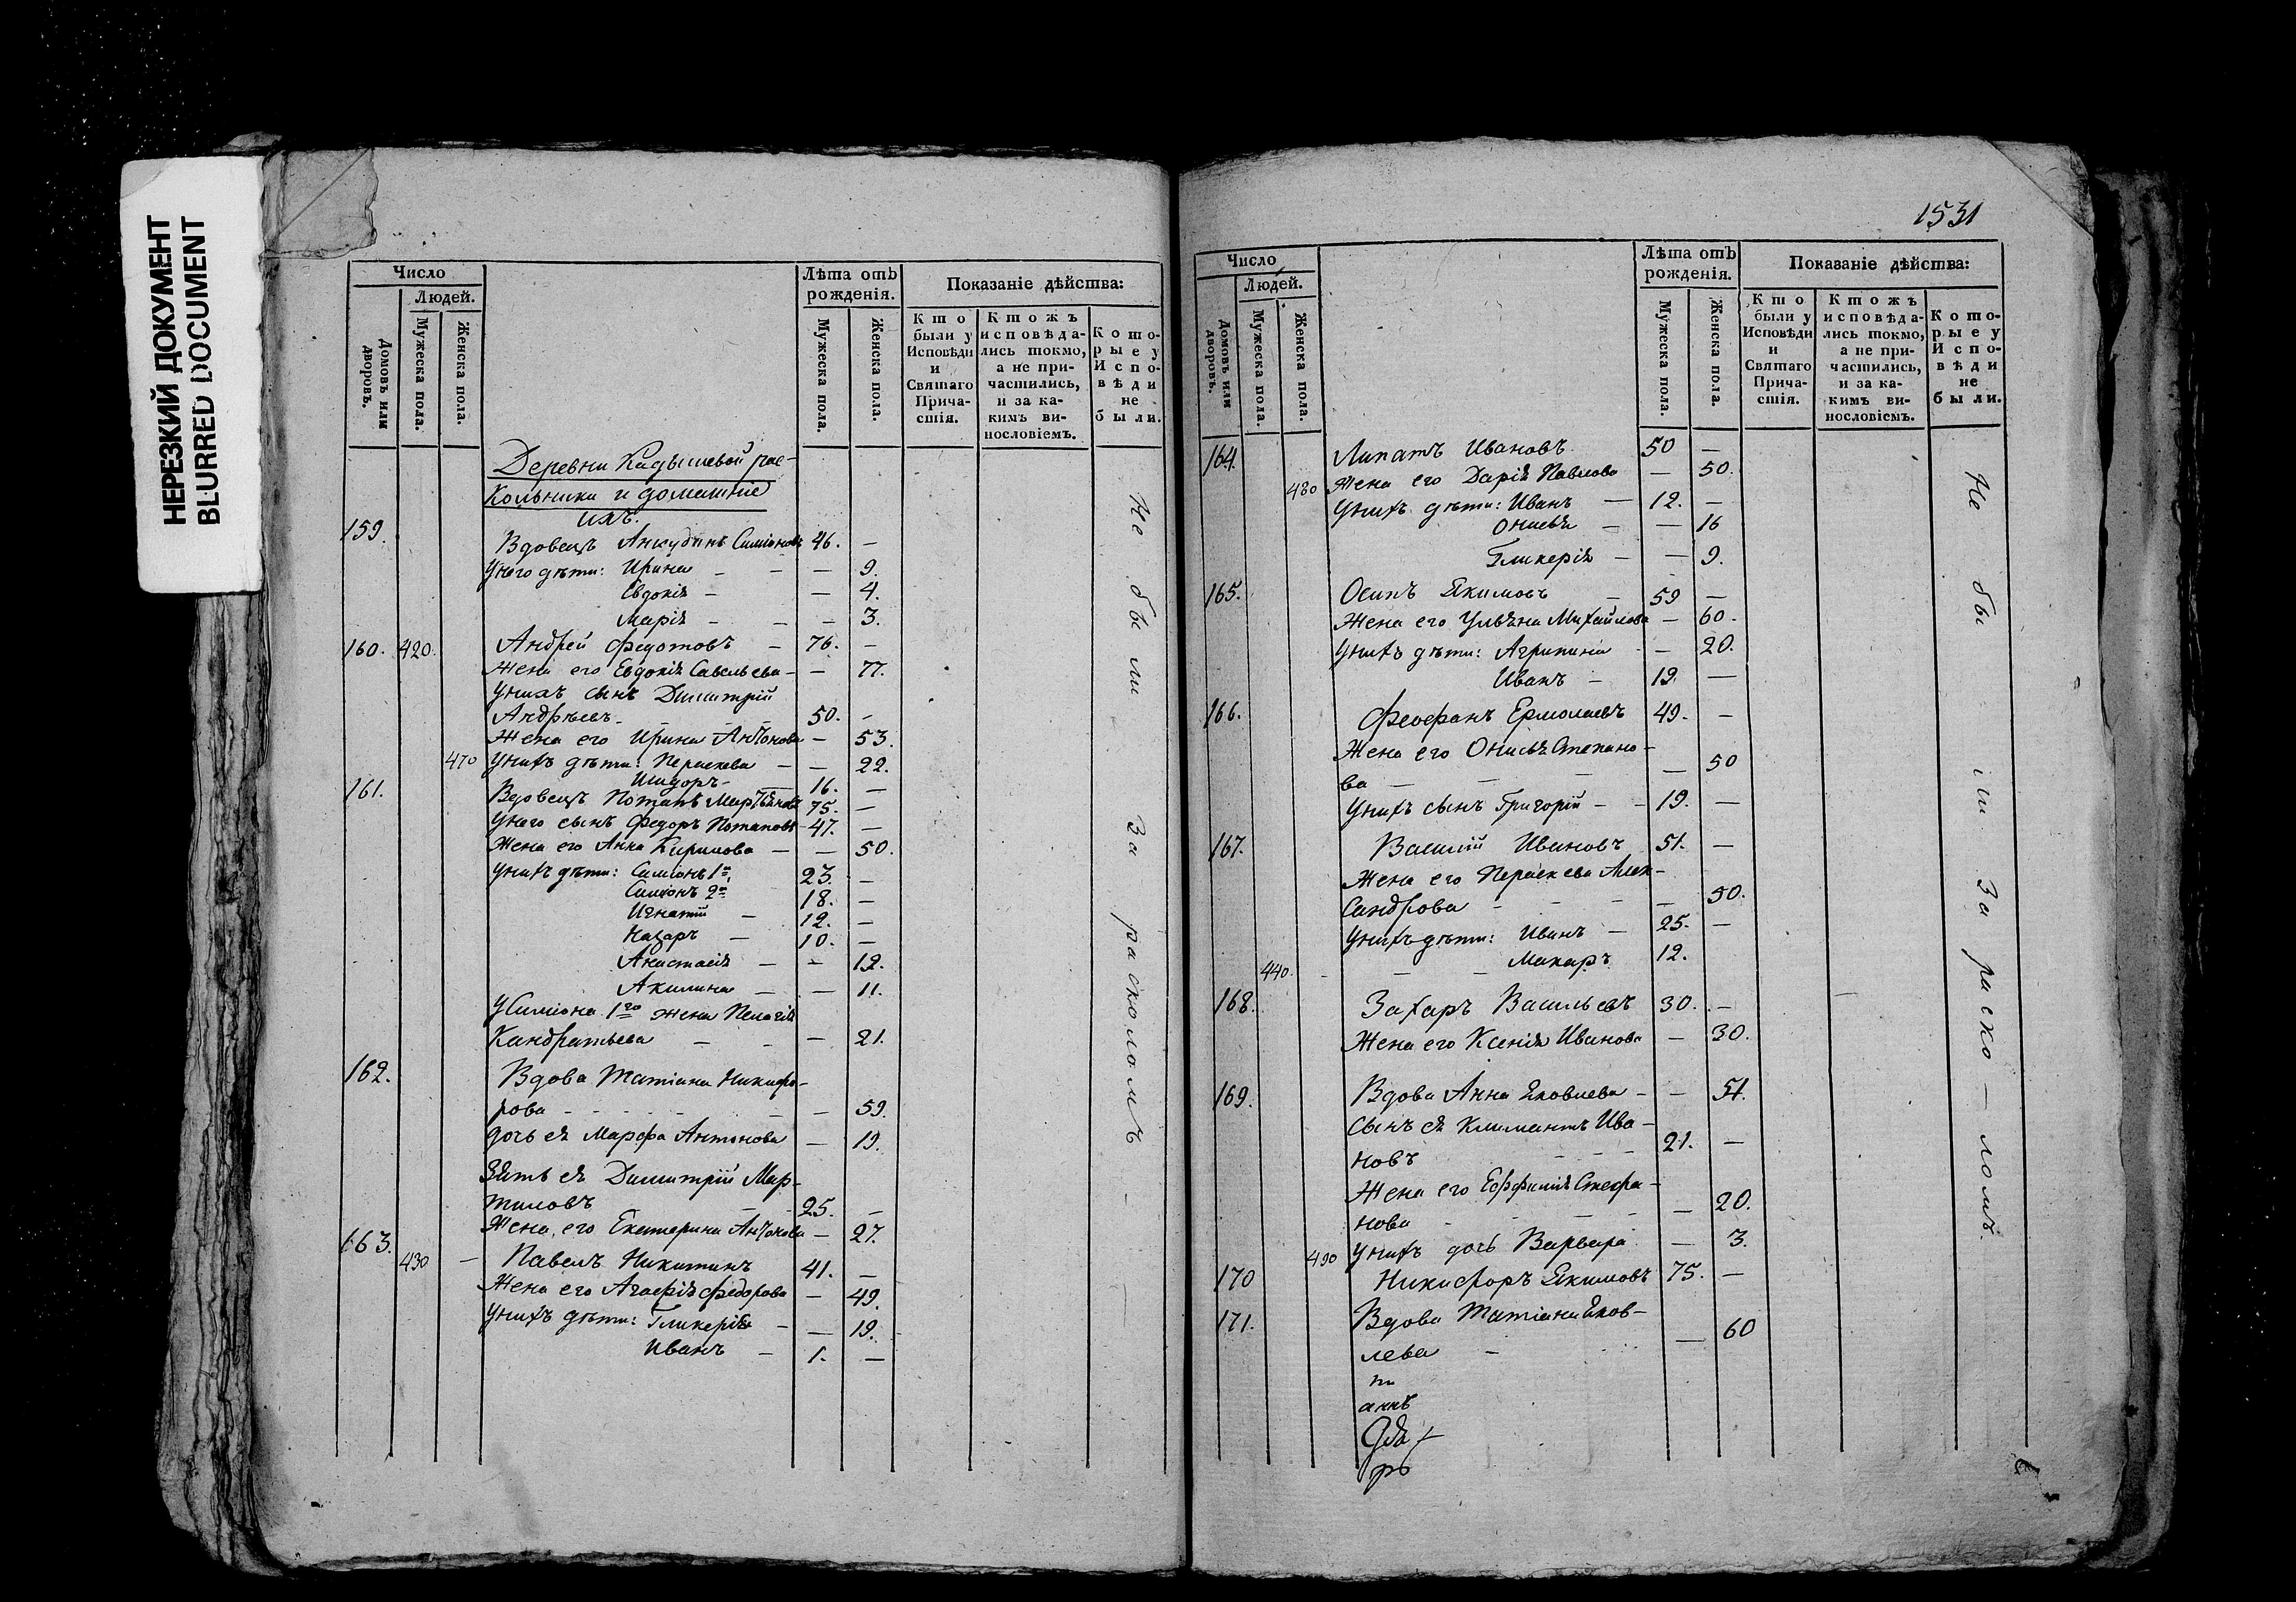 НЕРЕЗКИЙ ДОКУМЕНТ
BLURRED DOCUMENT
Число
Людей.
Домовъ или дворовъ.
Мужеска пола.
Женска пола.
Лѣта отъ рожденія.
Мужеска пола.
Женска пола.
Показаніе дѣйства:
Кто были у Исповѣди и Святаго Причастія.
Ктожъ исповѣдались токмо, а не причастились, и за какимъ винословіемъ.
Которые у Исповѣди не были.
Деревни Кадышевой рас-
кольники и домашніе
ихъ.
159. Вдовецъ Анкудинъ Симіоновъ 46. —
У него дѣти: Ирина — — — 9.
Евдокія — — 4.
Марія — — — 3.
160. 420. Андрей Федотовъ — 76. —
Жена его Евдокія Савельева — — 77.
У нихъ сынъ Димитрій
Андрѣевъ 50. —
Жена его Ирина Антонова — 53.
470 У нихъ дѣти: Параскева — — 22.
Исидоръ — 16. —
161. Вдовецъ Потапъ Мартыновъ 75. —
У него сынъ Федоръ Потаповъ 47. —
Жена его Анна Кирилова — — 50.
У нихъ дѣти: Симіонъ 1й 23. —
Симіонъ 2й 18. —
Игнатій — 12. —
Назаръ — 10. —
Анастасія — — 12.
Акилина — — 11.
У Симіона 1го жена Пелагія
Кандратьева — — — 21.
162. Вдова Татіана Никифо-
рова — — — 59.
дочь ея Марфа Антонова — 19.
Зять ея Димитрій Мар-
тиловъ 25. —
Жена его Екатерина Антонова — 27.
163. 430 — Павелъ Никитинъ 41. —
Жена его Агафія Федорова — 49.
У нихъ дѣти: Гликерія — — 19.
Иванъ — 1. —
Не были За расколомъ
1531
Число
Людей.
Домовъ или дворовъ.
Мужеска пола.
Женска пола.
Лѣта отъ рожденія.
Мужеска пола.
Женска пола.
Показаніе дѣйства:
Кто были у Исповѣди и Святаго Причастія.
Ктожъ исповѣдались токмо, а не причастились, и за какимъ винословіемъ.
Которые у Исповѣди не были.
164. Липатъ Ивановъ 50 —
480 Жена его Дарія Павлова — 50.
У нихъ дѣти: Иванъ — 12. —
Онисья — — 16
Гликерія — — 9.
165. Осипъ Якимовъ — 59 —
Жена его Ульяна Михайлова — 60.
У нихъ дѣти: Агрипина — — 20.
Иванъ — 19. —
166. Феофанъ Ермолаевъ 49. —
Жена его Онисья Степано-
ва — — — — 50
У нихъ сынъ Григорій — — 19. —
167. Василій Ивановъ 51. —
Жена его Параскева Алек-
сандрова — — — — 50.
У нихъ дѣти: Иванъ — 25. —
440. Макаръ 12.
168. Захаръ Васильевъ 30. —
Жена его Ксенія Иванова — 30.
169. Вдова Анна Яковлева — — 51.
сынъ ея Климантъ Ива-
новъ 21. —
Жена его Ефимія Стефа-
нова — 20.
490 У нихъ дочь Варвара — 3.
170 Никифоръ Якимовъ 75. —
171. Вдова Татіана Яков-
лева — — 60
Не были За раско-ломъ.